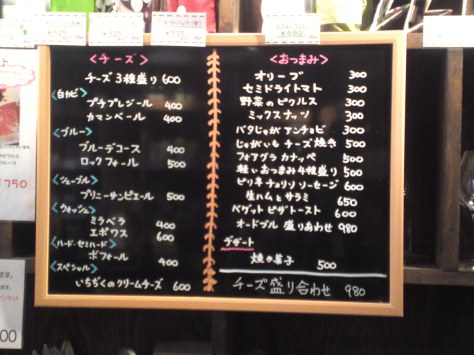 <チーズ>
チーズ3種盛り 600
<白カビ>
プチブレジール 400
カマンベール 400
<ブルー>
ブルーデコース 400
ロックフォール 500
<シェーブル>
プリニーサンピエール 500
<ウォッシュ>
ミラベラ 400
エポワス 600
<ハード・セミハード>
ボフォール 400
<スペシャル>
いちぢくのクリームチーズ 600
<おつまみ>
オリーブ 300
セミドライトマト 300
野菜のピクルス 300
ミックスナッツ 300
バタじゃが アンチョビ 300
じゃがいも チーズ焼き 500
フォアグラ カナッペ 500
軽いおつまみ4種盛り 500
ピリ辛チョリソ ソーセージ 600
生ハムとサラミ 650
バゲット ピザトースト 600
オードブル 盛りあわせ 980
デザート
焼き菓子 500
チーズ盛り合わせ 980